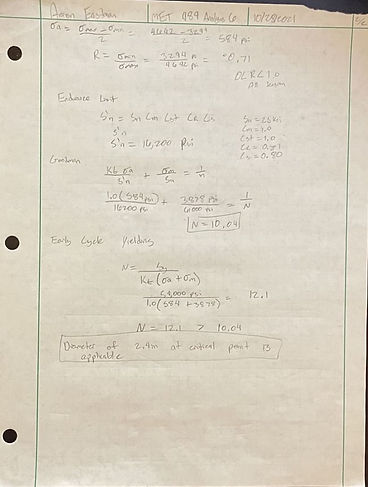 Aaron Eastman MET 489 Analysis 6 10/28/2021
σa = σmax - σmin / 2 = 4462 - 3294 / 2 = 584 psi
R = σmin / σmax = 3294 / 4462 = 0.71
0 < R < 1.0
Endurance Limit
S'n = Sn Cm Cst CR Cs
Sn = 25 ksi
Cm = 1.0
Cst = 1.0
CR = 0.81
Cs = 0.80
S'n = 16,200 psi
Goodman
Kt σa / S'n + σm / Su = 1/n
1.0(584 psi) / 16200 psi + 3878 psi / 61000 psi = 1/N
N = 10.04
Early Cycle Yielding
N = Sy / Kt (σa + σm)
psi / 1.0(584 + 3878) = 12.1
N = 12.1 > 10.04
Diameter of 2.4in at critical point is
applicable